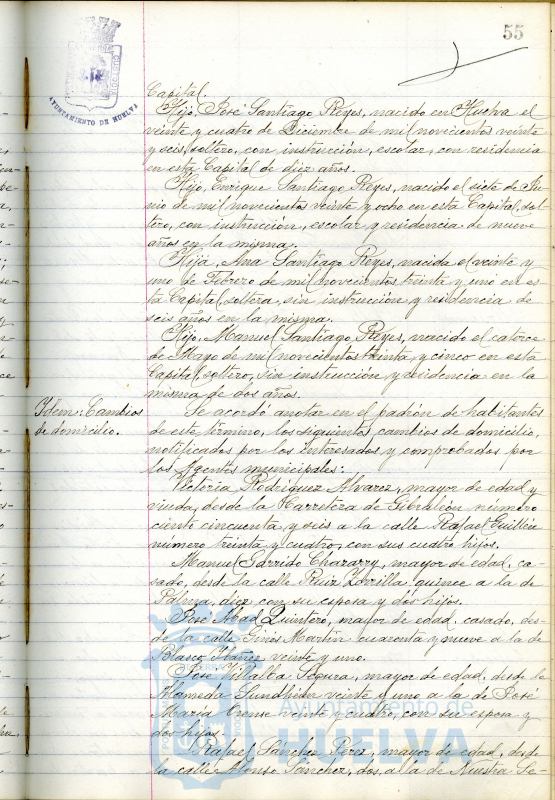 55
AYUNTAMIENTO DE HUELVA
Capital.
Hijo, José Santiago Reyes, nacido en Huelva el
veinte y cuatro de Diciembre de mil novecientos veinte
y seis, soltero, con instrucción, escolar, con residencia
en esta Capital de diez años.
Hijo, Enrique Santiago Reyes, nacido el siete de Ju-
nio de mil novecientos veinte y ocho en esta Capital, sol-
tero, con instrucción, escolar y residencia de nueve
años en la misma.
Hija, Ana Santiago Reyes, nacida el veinte y
uno de Febrero de mil novecientos treinta y uno en es-
ta Capital, soltera, sin instrucción y residencia de
seis años en la misma.
Hijo, Manuel Santiago Reyes, nacido el catorce
de Mayo de mil novecientos treinta y cinco en esta
Capital, soltero, sin instrucción y residencia en la
misma de dos años.
Idem: Cambios
de domicilio.
Se acordó anotar en el padrón de habitantes
de este término, los siguientes cambios de domicilio,
notificados por los interesados y comprobados por
los Agentes municipales:
Victoria Rodriguez Alvarez, mayor de edad y
viuda, desde la Carretera de Gibraleón número
ciento cincuenta y seis a la calle Rafael Guillén
número treinta y cuatro, con sus cuatro hijos.
Manuel Garrido mayor de edad, ca-
sado, desde la calle Ruiz Zorrilla quince a la de
Palma, diez con su esposa y dos hijos.
José Abad Quintero, mayor de edad, casado, des-
de la calle Ginés Martín cuarenta y nueve a la de
Blasco Ibáñez veinte y uno.
José Villalba Segura, mayor de edad, desde la
Alameda Sundheim veinte y uno a la de José
María Orense veinte y cuatro, con su esposa y
dos hijos.
Rafael Sánchez Pérez, mayor de edad, desde
la calle Alonso Sánchez, dos, a la de Nuestra Se-
Ayuntamiento de
HUELVA